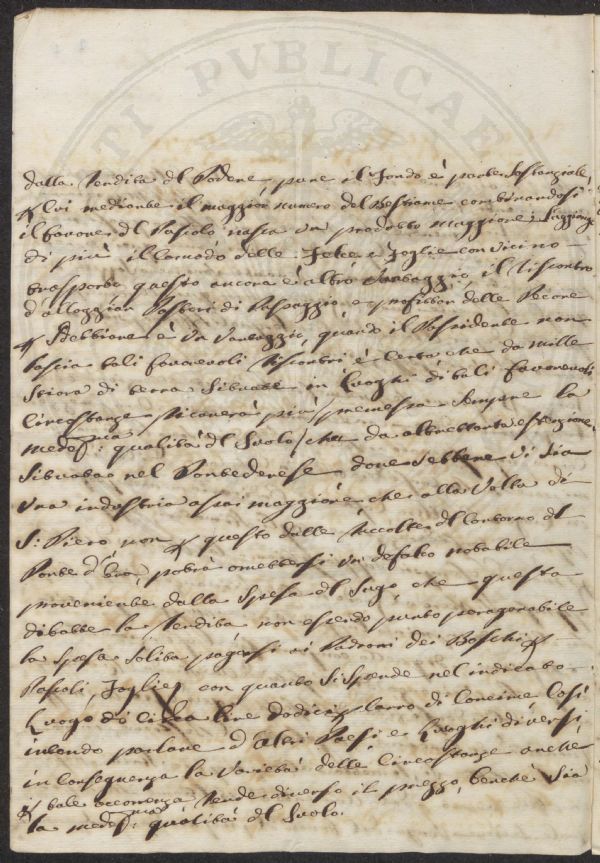 ATI PVBLICAE
dalla Vendita dl Podere, pure il fondo è parte sostanziale,
lui mediante il maggior numero del Bestiame combinandosi
il favore dl Pascolo nasca un prodotto maggiore;
di più il comodo delle Felce e foglie con vicino
trasporto questo ancora è altro Vantaggio, il riscontro
d'alloggiar Pastori di e delle Pecore
è un Vantaggio, quando il non
tali favorevoli è certo che da mille
Stiora di terra situate in Luoghi di tali favorevoli
Circostanze, più premessa sempre la
medesma: qualità dl Suolo che da altrettanta estensione
situata nel Pontederese dove sebbene vi sia
una industria assai maggiore che alla Volta di
S: Piero non questo dalle raccolte dl contorno dl
Ponte d' potrà omettersi un defalco notabile
proveniente dalla Spesa dl Sugo, che questa
dibatte la Vendita non essendo punto paragonabile
la Spesa solita pagarsi ai Padroni dei Boschi
Pascoli, foglie, con quanto si spende nel indicato
Luogo di circa lire dodici carro di Concime Così
intendo parlare d'altri Paesi e Luoghi diversi
in conseguenza la Varietà delle Circostanze anche
tale occorrenza rende diverso il prezzo, benchè sia
la medesma: qualità dl Suolo.